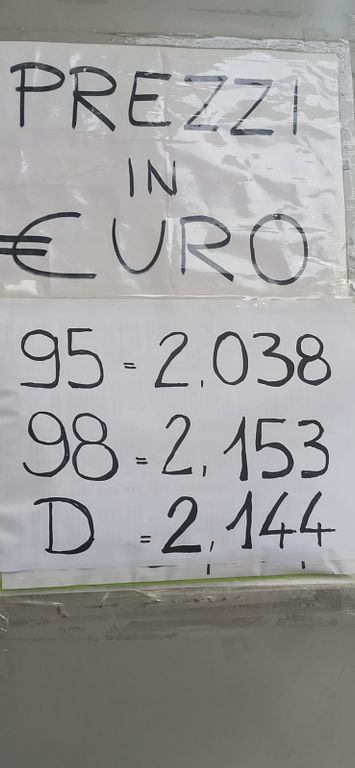 PREZZI
IN
€URO
95 = 2.038
98 = 2,153
D = 2,144